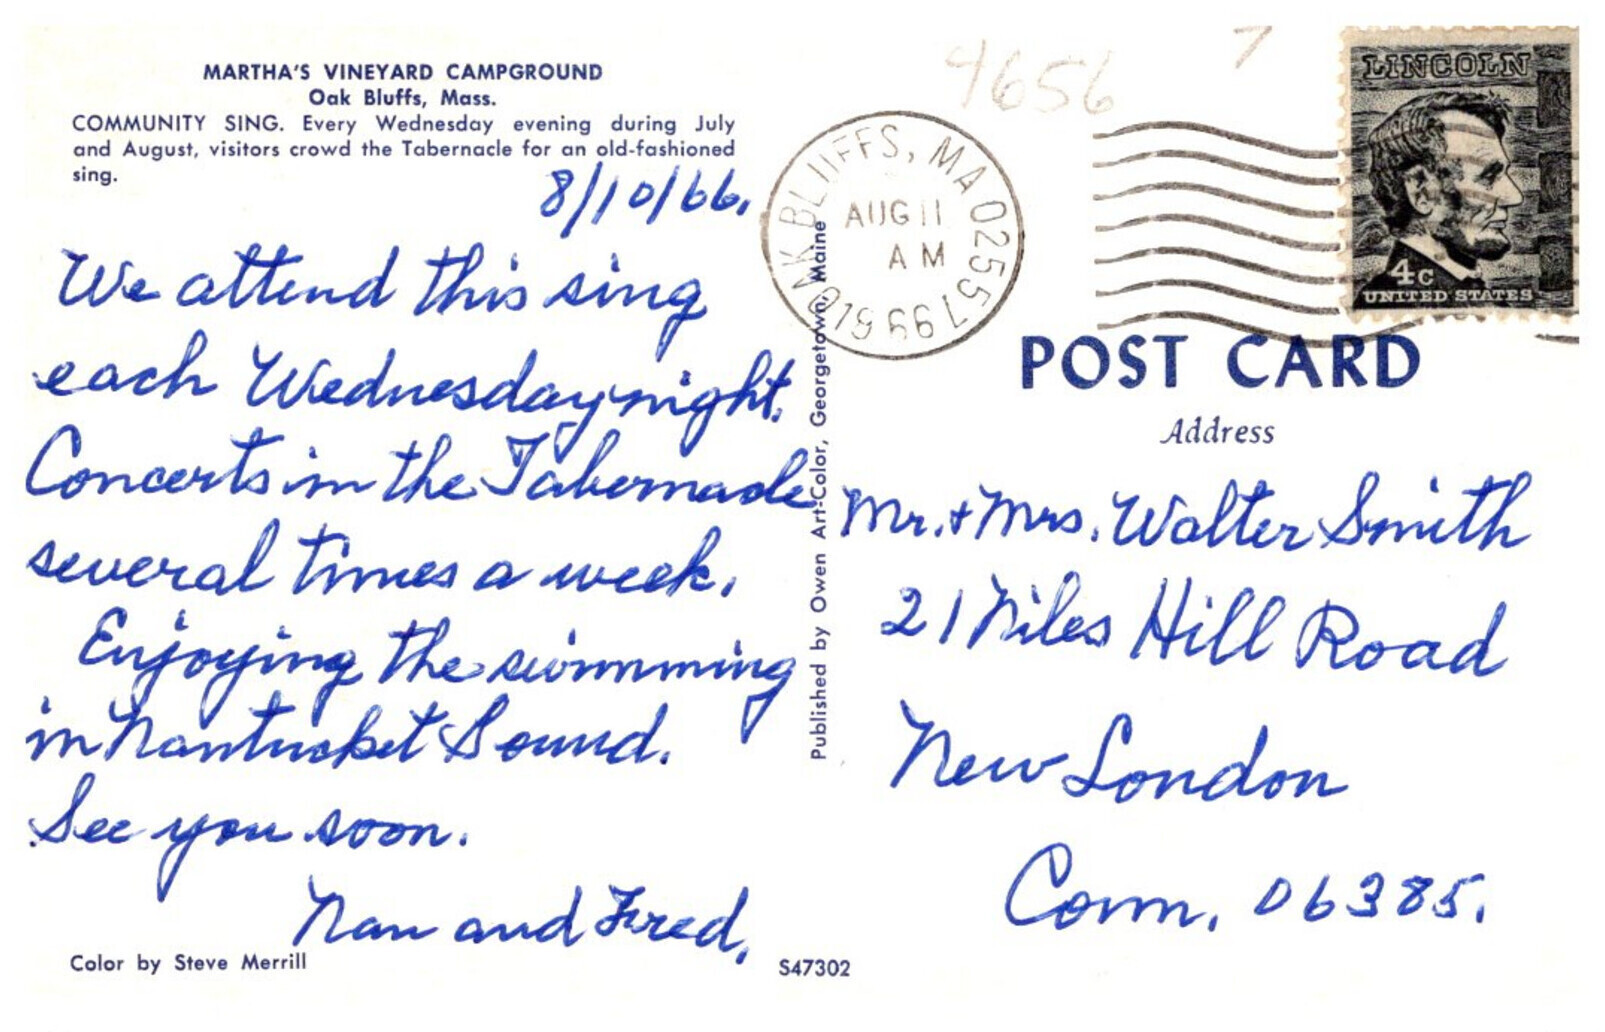 MARTHA'S VINEYARD CAMPGROUND
Oak Bluffs, Mass.
COMMUNITY SING. Every Wednesday evening during July
and August, visitors crowd the Tabernacle for an old-fashioned
sing.
8/10/66.
We attend this sing
each Wednesday night.
Concerts in the Tabernacle
several times a week.
Enjoying the swimming
in Nantucket Sound.
See you soon.
Nan and Fred.
Color by Steve Merrill
S47302
Published by Owen Art-Color, Georgetown, Maine
4656
7
OAK BLUFFS, MA 02557
AUG 11
AM
1966
LINCOLN
4c
UNITED STATES
POST CARD
Address
Mr. + Mrs. Walter Smith
21 Niles Hill Road
New London
Conn. 06385.